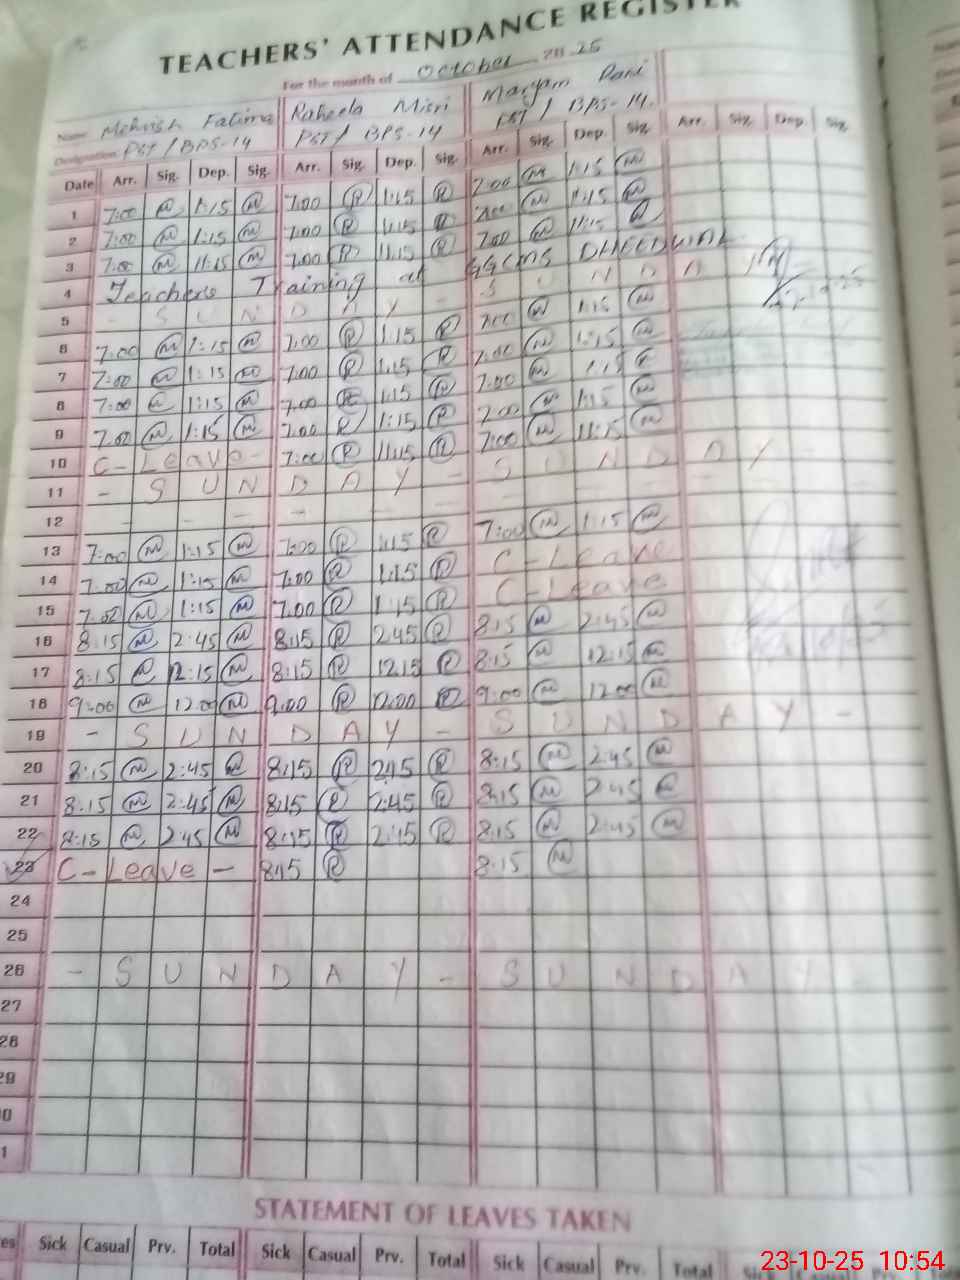 TEACHERS' ATTENDANCE REGISTER
For the month of October 2025
Name Mehvish Fatima Raheela Misri Maryam Pani
Designation PST / BPS-14 PST / BPS-14 PST / BPS-14.
Date Arr. Sig. Dep. Sig. Arr. Sig. Dep. Sig. Arr. Sig. Dep. Sig. Arr. Sig. Dep. Sig.
1 7:00 M 1:15 M 7:00 R 1:15 R 7:00 M 1:15 M
2 7:00 M 1:15 M 7:00 R 1:15 R 7:00 M 1:15 M
3 7:00 M 11:15 M 7:00 R 11:15 R 7:00 M 11:15 M
4 Teachers Training at GGCMS
5 - S U N D A Y - S U N D A
6 7:00 M 1:15 M 7:00 R 1:15 R 7:00 M 1:15 M
7 7:00 M 1:15 M 7:00 R 1:15 R 7:00 M 1:15 M
8 7:00 M 1:15 M 7:00 R 1:15 R 7:00 M 1:15
9 7:00 M 1:15 M 7:00 R 1:15 R 7:00 M 1:15 M
10 C-Leave- 7:00 R 11:15 R 7:00 M 11:15 M
11 - S U N D A Y - S U N D A Y -
12
13 7:00 M 1:15 M 7:00 R 1:15 R 7:00 M 1:15 M
14 7:00 M 1:15 M 7:00 R 1:15 R C-Leave
15 7:00 M 1:15 M 7:00 R 1:15 R C-Leave
16 8:15 M 2:45 M 8:15 R 2:45 R 8:15 M 2:45 M
17 8:15 M 12:15 M 8:15 R 12:15 R 8:15 M 12:15 M
18 9:00 M 12:00 M 9:00 R 12:00 R 9:00 M 12:00 M
19 - S U N D A Y - S U N D A Y -
20 8:15 M 2:45 M 8:15 R 2:45 R 8:15 M 2:45 M
21 8:15 M 2:45 M 8:15 R 2:45 R 8:15 M 2:45 M
22 8:15 M 2:45 M 8:15 R 2:45 R 8:15 M 2:45 M
23 C-Leave - 8:15 R 8:15 M
24
25
26 - S U N D A Y - S U N D A Y
27
28
29
0
1
STATEMENT OF LEAVES TAKEN
es Sick Casual Prv. Total Sick Casual Prv. Total Sick Casual Prv. Total
23-10-25 10:54